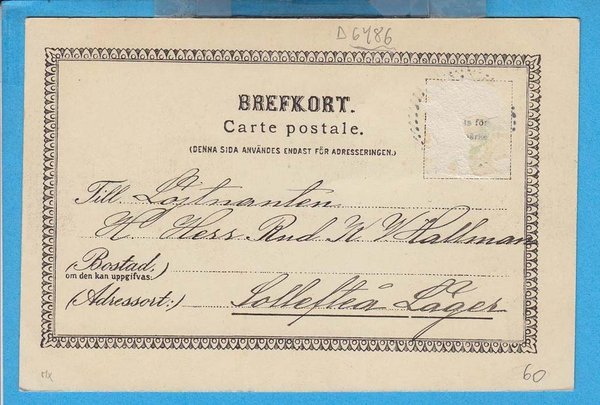 D6486
BREFKORT.
Carte postale.
(DENNA SIDA ANVÄNDES ENDAST FÖR ADRESSERINGEN.)
ts för
ärke
Till Löjtnanten
H Herr Rnd K W Hallman
(Bostad,)
om den kan uppgifvas:
(Adressort:) Sollefteå Läger
MX
60